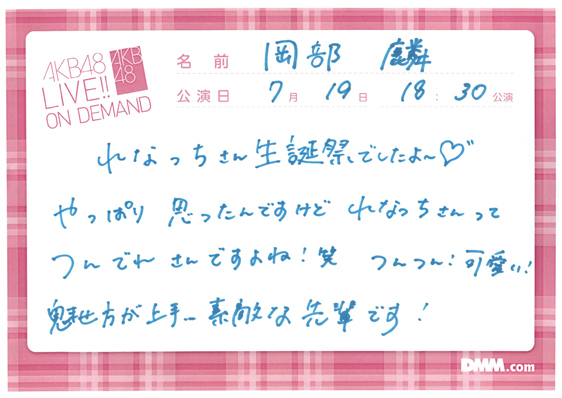 AKB48
LIVE!!
ON DEMAND
AKB
48
名前 岡部 麟
公演日 7月 19日 18:30公演
れなっちさん生誕祭でしたよ〜♡
やっぱり 思ったんですけど れなっちさんって
つんでれ さんですよね!笑 つんつん!可愛い!
魅せ方が上手… 素敵な先輩です!
DMM.com